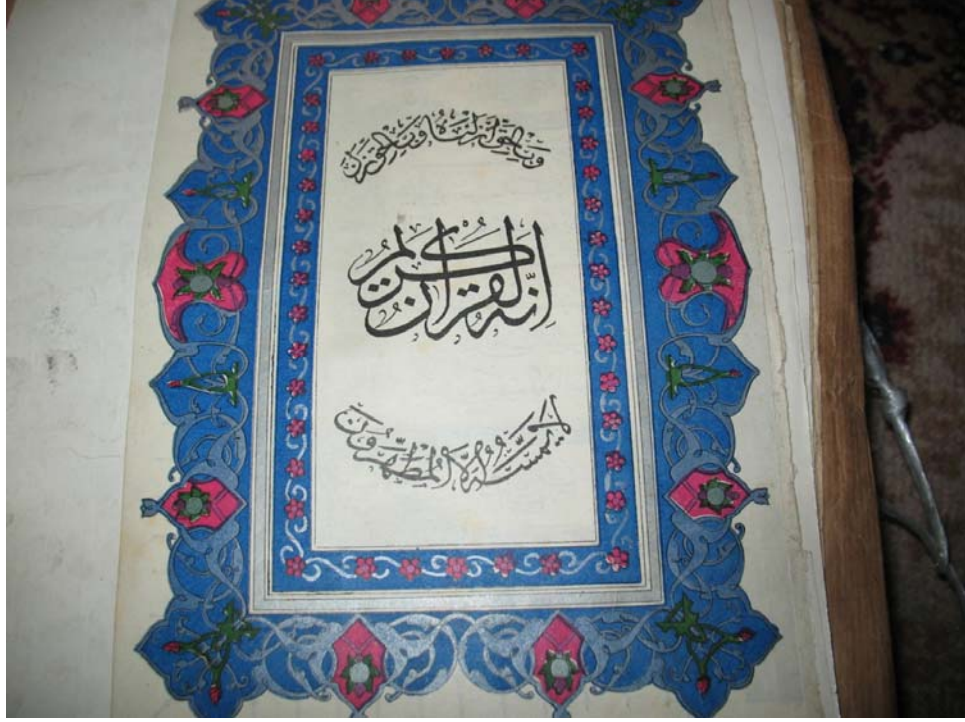 وَبِالْحَقِّ أَنزَلْنَاهُ وَبِالْحَقِّ نَزَلَ
إِنَّهُ لَقُرْآنٌ كَرِيمٌ
لَا يَمَسُّهُ إِلَّا الْمُطَهَّرُونَ